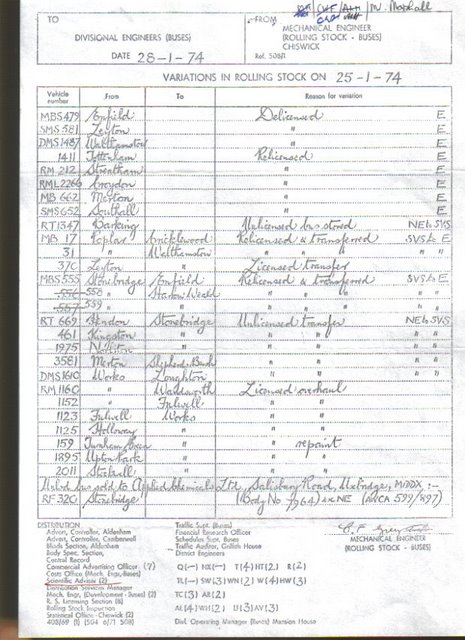 CHF / AHH / M. Marshall
TO
FROM
DIVISIONAL ENGINEERS (BUSES)
MECHANICAL ENGINEER
(ROLLING STOCK - BUSES)
CHISWICK
DATE 28-1-74
Ref. 508/1
VARIATIONS IN ROLLING STOCK ON 25-1-74
Vehicle number From To Reason for variation
MBS 479 Enfield Delicensed E
SMS 581 Leyton " E
DMS 1487 Walthamstow " E
1411 Tottenham Relicensed E
RM 212 Streatham " E
RML 2266 Croydon " E
MB 662 Merton " E
SMS 652 Southall " E
RT 1347 Barking Unlicensed bus stored NE to SVS
MB 17 Poplar Cricklewood Relicensed & transferred SVS to E
31 " Walthamstow " " " " " "
370 Leyton " Licensed transfer
MBS 555 Stonebridge Enfield Relicensed & transferred SVS to E
556 558 " Harrow Weald " " " " "
557 559 " " " " " " "
RT 669 Hendon Stonebridge Unlicensed transfer NE to SVS
461 Kingston " " " " " "
1975 Norbiton " " " " " "
3581 Merton Shepherds Bush " " " " "
DMS 1610 Works Loughton " "
RM 1160 " Wandsworth Licensed overhaul
1152 " Fulwell " "
1123 Fulwell Works " "
1125 Holloway " " "
159 Turnham Green " " repaint
1895 Upton Park " " "
2011 Stockwell " " "
Unlcd bus sold to Applied Chemicals Ltd, Salisbury Road, Uxbridge, MIDDX :-
RF 320 Stonebridge (Body No 7964) ex NE (AVCA 599/897)
DISTRIBUTION
Advert. Controller, Aldenham
Advert. Controller, Camberwell
Block Section, Aldenham
Body Spec. Section,
Control Record
Commercial Advertising Officer (7)
Costs Office (Mech. Engr, Buses)
Scientific Adviser (2)
Distribution Services Manager
Mech. Engr, (Development - Buses) (2)
R. S. Licensing Section (6)
Rolling Stock Inspection
Statistical Office - Chiswick (2)
408/69 (1) (504 6/71 508)
Traffic Supt. (Buses)
Financial Research Officer
Schedules Supt. Buses
Traffic Auditor, Griffith House
District Engineers
Q(-) NX(-) T(4) HT(2) R(2)
TL(-) SW(3) WN(2) W(4) HW(3)
TC(3) AR(2)
AL(4) WH(2) U(3) AV(3)
Distl. Operating Manager (Buses) Mansion House
MECHANICAL ENGINEER
(ROLLING STOCK - BUSES)